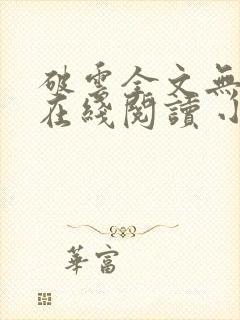 破雲全文無
在綫閱讀 小
華富